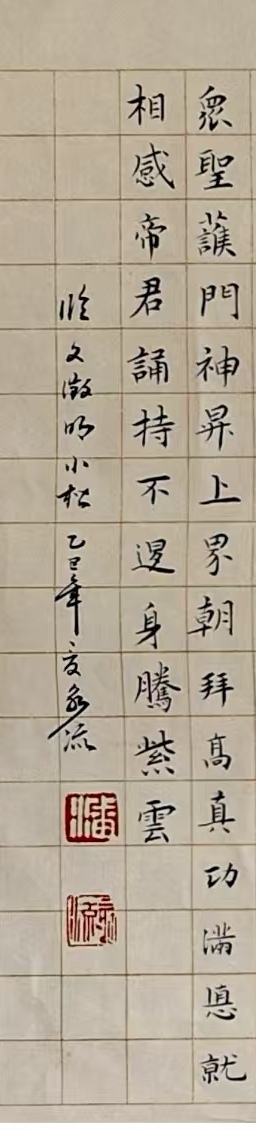 眾聖䕶門神昇上界朝拜髙真功滿悳就
相感帝君誦持不退身騰紫雲
臨文徵明小楷 乙巳年夏永流
潘